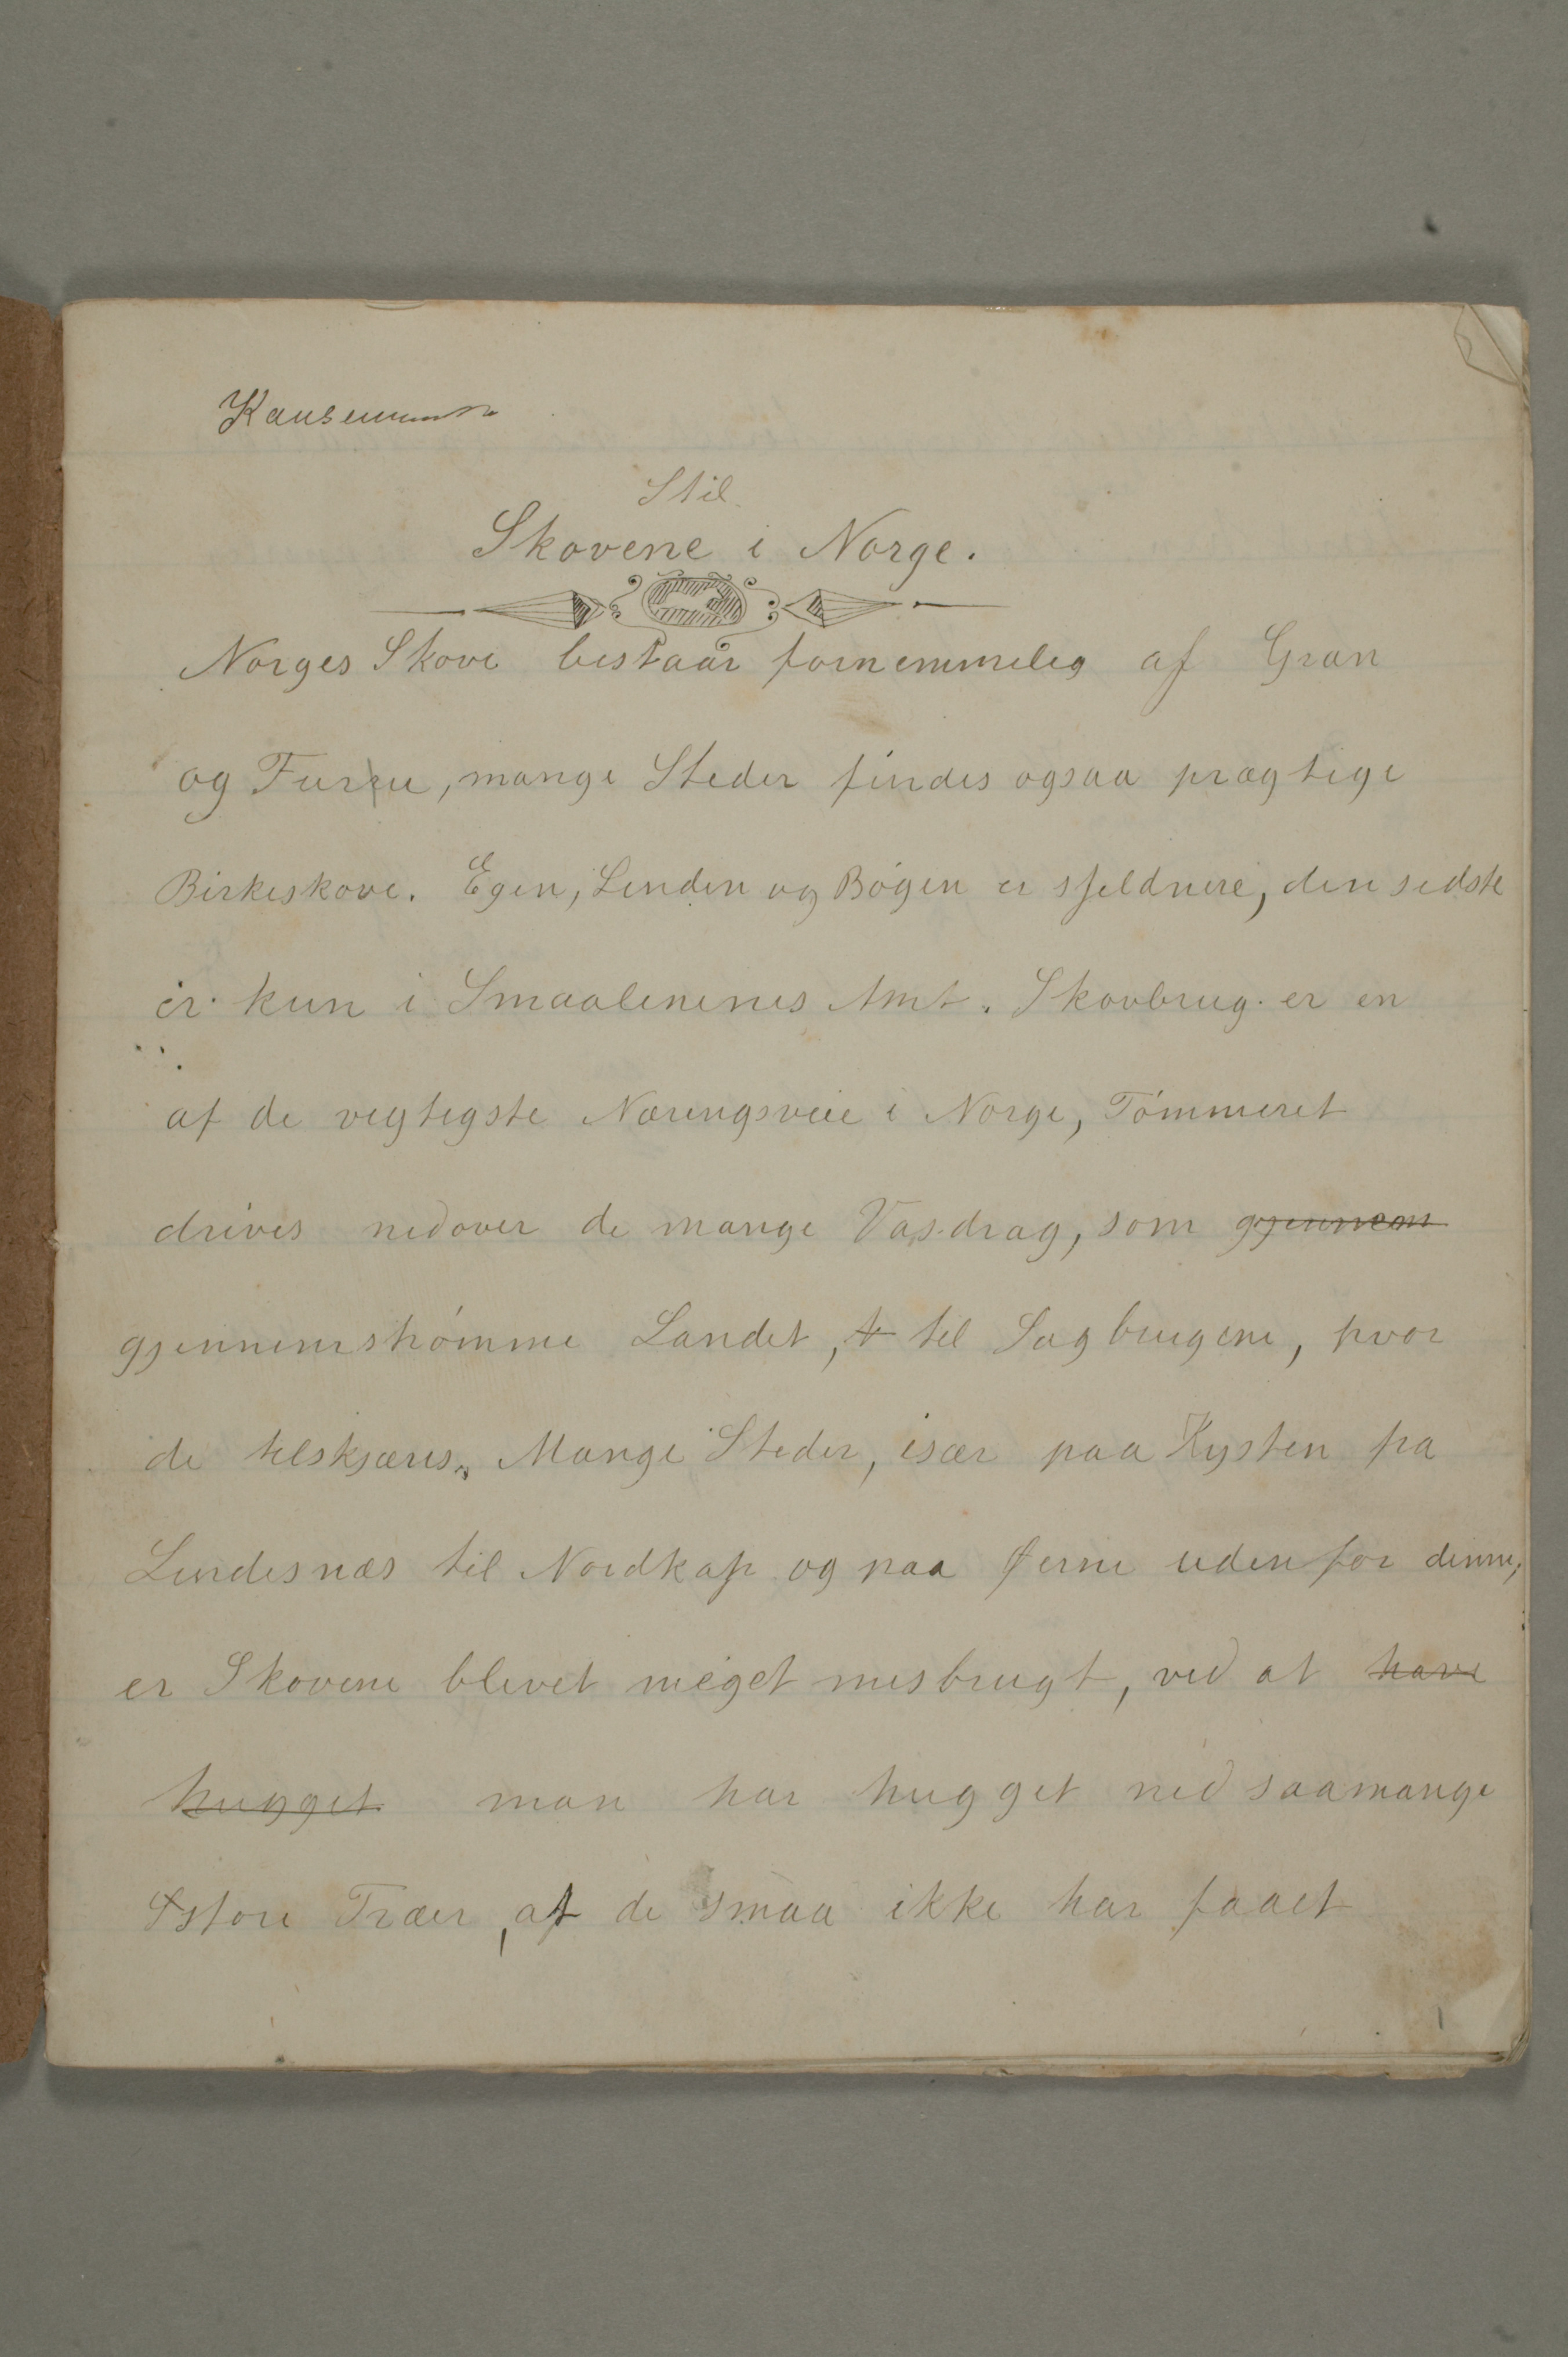 Stil
Skovene i Norge.
Norges Skove bestaar fornemmelig af Gran
og Furru, mange Steder findes ogsaa prægtige
Birkeskove. Egen, Linden og Bøgen er sjeldnere, den sidste
er kun i Smaalenenes Amt. Skovbrug er en
af de vigtigste Næringsveie i Norge, Tømmeret
drives nedover de mange Vasdrag, som gjennem
gjennemstrømme Landet, t til Sagbrugene, hvor
de tilskjæres. Mange Steder, især paa Kysten fra
Lindesnæs til Nordkap og paa Øerne udenfor denne,
er Skovene blevet meget misbrugt, ved at have
hugget man har hugget ned saamange
store Træer, at de smaa ikke har faaet